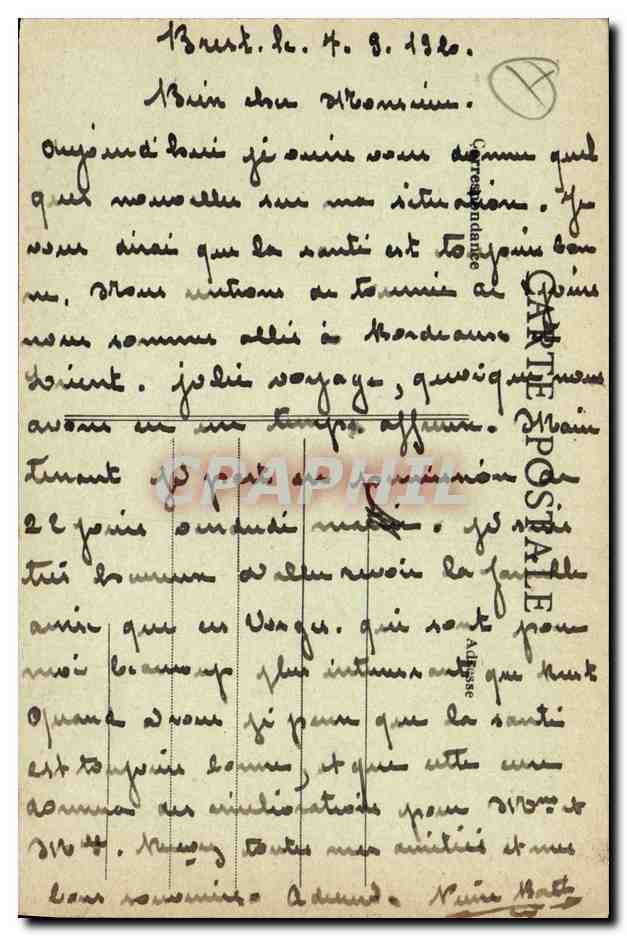 Brest. le 7. 9. 1920.
Bien cher Monsieur.
Aujourd'hui je viens vous donner quel
ques nouvelles sur ma situation. Je
vous dirai que la santé est toujours bon
ne. Nous rentrons de tournée de jours
nous sommes allés à Bordeaux
Lorient. jolie voyage, quoique nous
avons eu un temps affreux. Main
tenant je pars en permission de
22 jours vendredi matin. je suis
très heureux d'aller revoir la famille
ainsi que ces Vosges. qui sont pour
moi beaucoup plus intéressant que Brest
Quand à vous je pense que la santé
est toujours bonne, et que cette cure
donnera des améliorations pour Mme et
Mr. Recevez toutes mes amitiés et mes
bons souvenirs.
Correspondance
CARTE POSTALE
Adresse
CPAPHIL